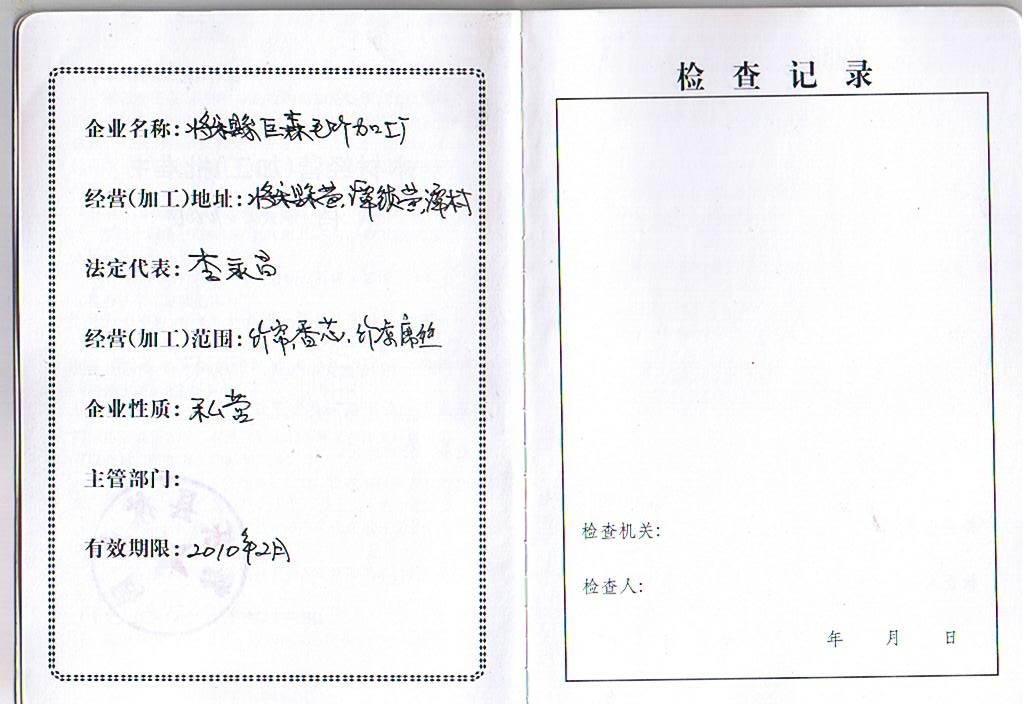 企业名称:将乐縣巨森毛竹加工厂
经营(加工)地址:将乐縣黄潭镇黄潭村
法定代表:李
经营(加工)范围:竹帘、香芯、竹凉席丝
企业性质:私营
主管部门:
有效期限:2010年2月
检查记录
检查机关:
检查人:
年 月 日